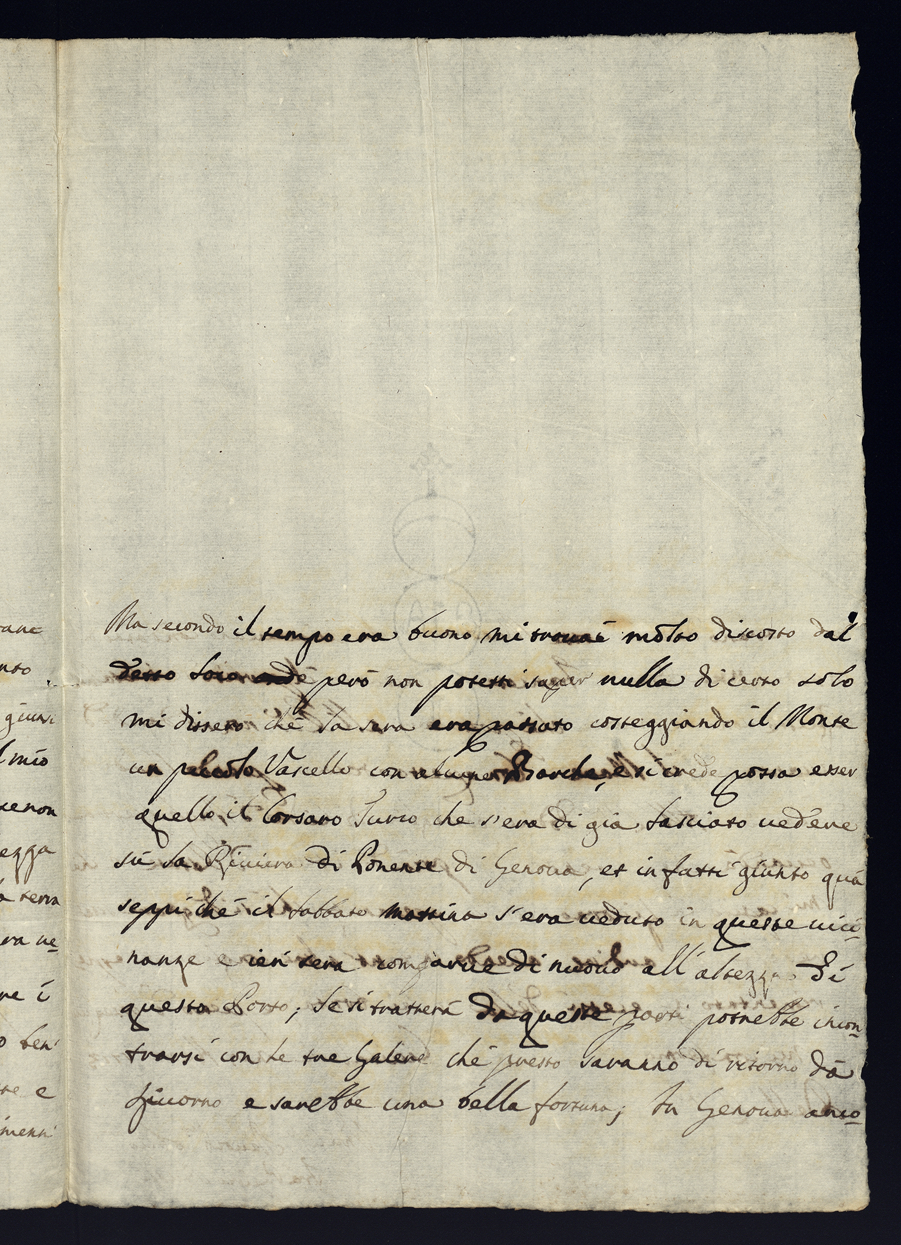 Ma secondo il tempo era buono mi trovai molto discosto dal
detto però non potetti saper nulla di certo solo
mi dissero che la sera era passato costeggiando il Monte
un piccolo Vascello con alcune Barche, e si crede possa esser
quello il Corsaro Turco che s'era di già lasciato vedere
sù la Riviera di Ponente di Genova, et in fatti giunto quà
seppi che il sabbato mattina s'era veduto in queste vici-
nanze e ieri sera comparve di nuovo all'altezza di
questo Porto; se si tratterà da queste parti potrebbe incon-
trarsi con le tre Galere che presto saranno di ritorno da
Livorno e sarebbe una bella fortuna; In Genova anco-